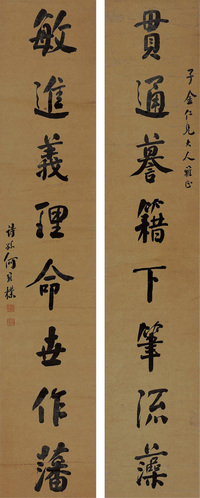 子金仁兄大人雅正
貫通羣籍下筆流藻
敏進義理命世作藩
詩孫何維樸